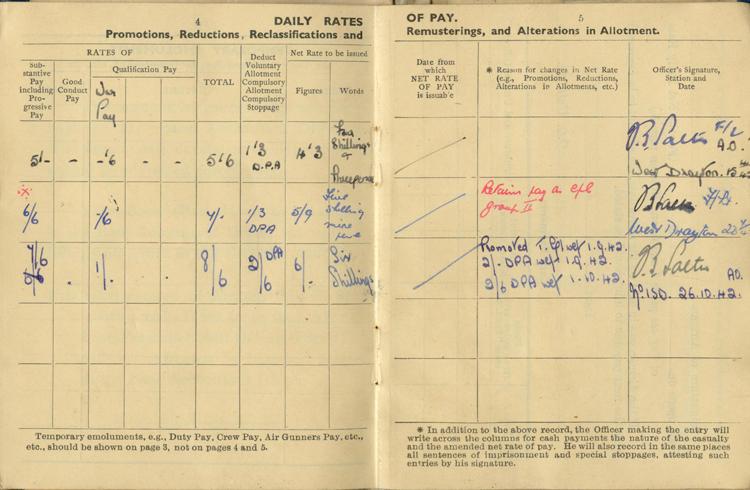 4
DAILY RATES
Promotions, Reductions, Reclassifications and
RATES OF
Sub-
stantive
Pay
including
Pro-
gressive
Pay
Good
Conduct
Pay
Qualification Pay
War
Pay
TOTAL
Deduct
Voluntary
Allotment
Compulsory
Allotment
Compulsory
Stoppage
Net Rate to be issued
Figures
Words
5/- - -/6 - - 5/6 1/3 D.P.A 4/3 Four Shillings & Threepence
6/6 -/6 7/- 1/3 DPA 5/9 Five shilling nine
7/6 1/- 8/6 2/6 DPA 6/- Six Shillings
Temporary emoluments, e.g., Duty Pay, Crew Pay, Air Gunners Pay, etc.,
etc., should be shown on page 3, not on pages 4 and 5.
OF PAY.
5
Remusterings, and Alterations in Allotment.
Date from
which
NET RATE
OF PAY
is issuable
* Reason for changes in Net Rate
(e.g., Promotions, Reductions,
Alterations in Allotments, etc.)
Officer's Signature,
Station and
Date
F/L
A.D.
West Drayton
Retains pay as cpl
group II
West Drayton
Promoted T. Cpl wef 1.9.42.
2/- DPA wef 1.9.42.
2/6 DPA wef 1.10.42.
AD.
26.10.42.
* In addition to the above record, the Officer making the entry will
write across the columns for cash payments the nature of the casualty
and the amended net rate of pay. He will also record in the same places
all sentences of imprisonment and special stoppages, attesting such
entries by his signature.